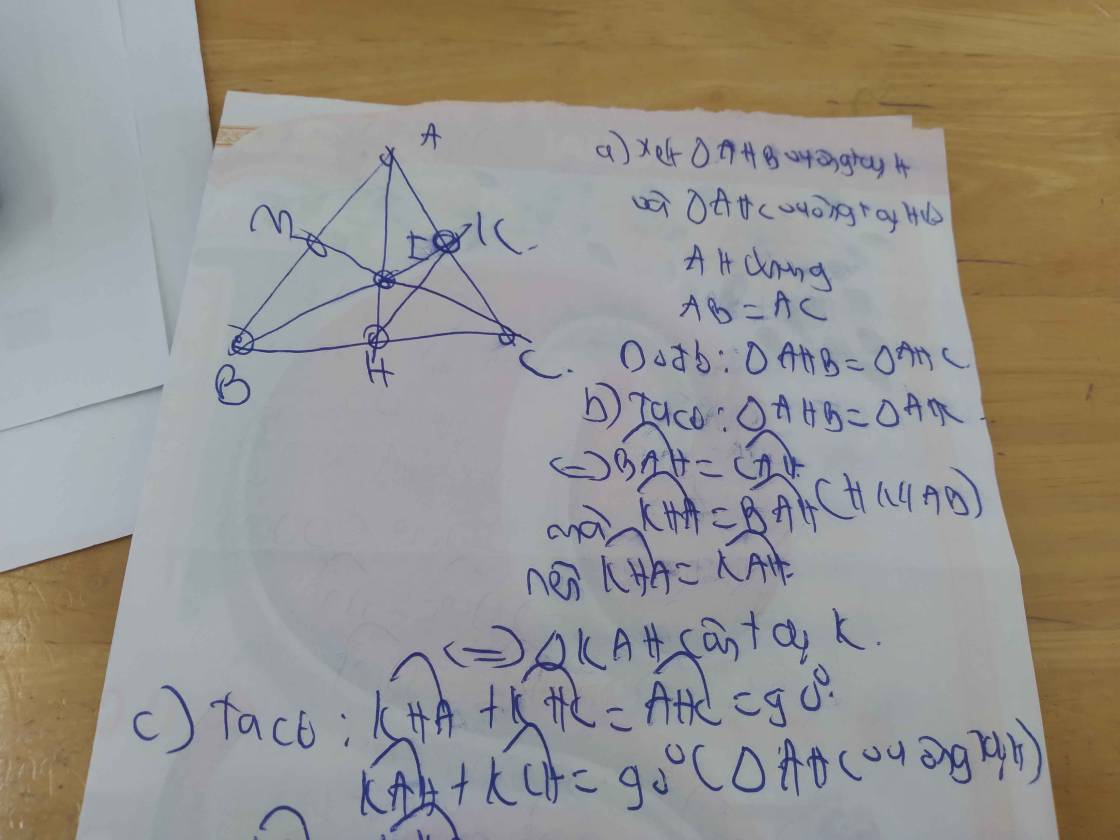 A
M
I K
B
H
C
a) Xét △AHB vuông tại H
và △AHC vuông tại H có
AH chung
AB = AC
Do đó: △AHB = △AHC
b) Ta có: △AHB = △AHC
<=> BAH = CAH
mà KHA = BAH (HK//AB)
nên KHA = KAH
<=> △KAH cân tại K.
c) Ta có: KHA + KHC = AHC = 90°
KAH + KCH = 90° (△AHC vuông tại H)